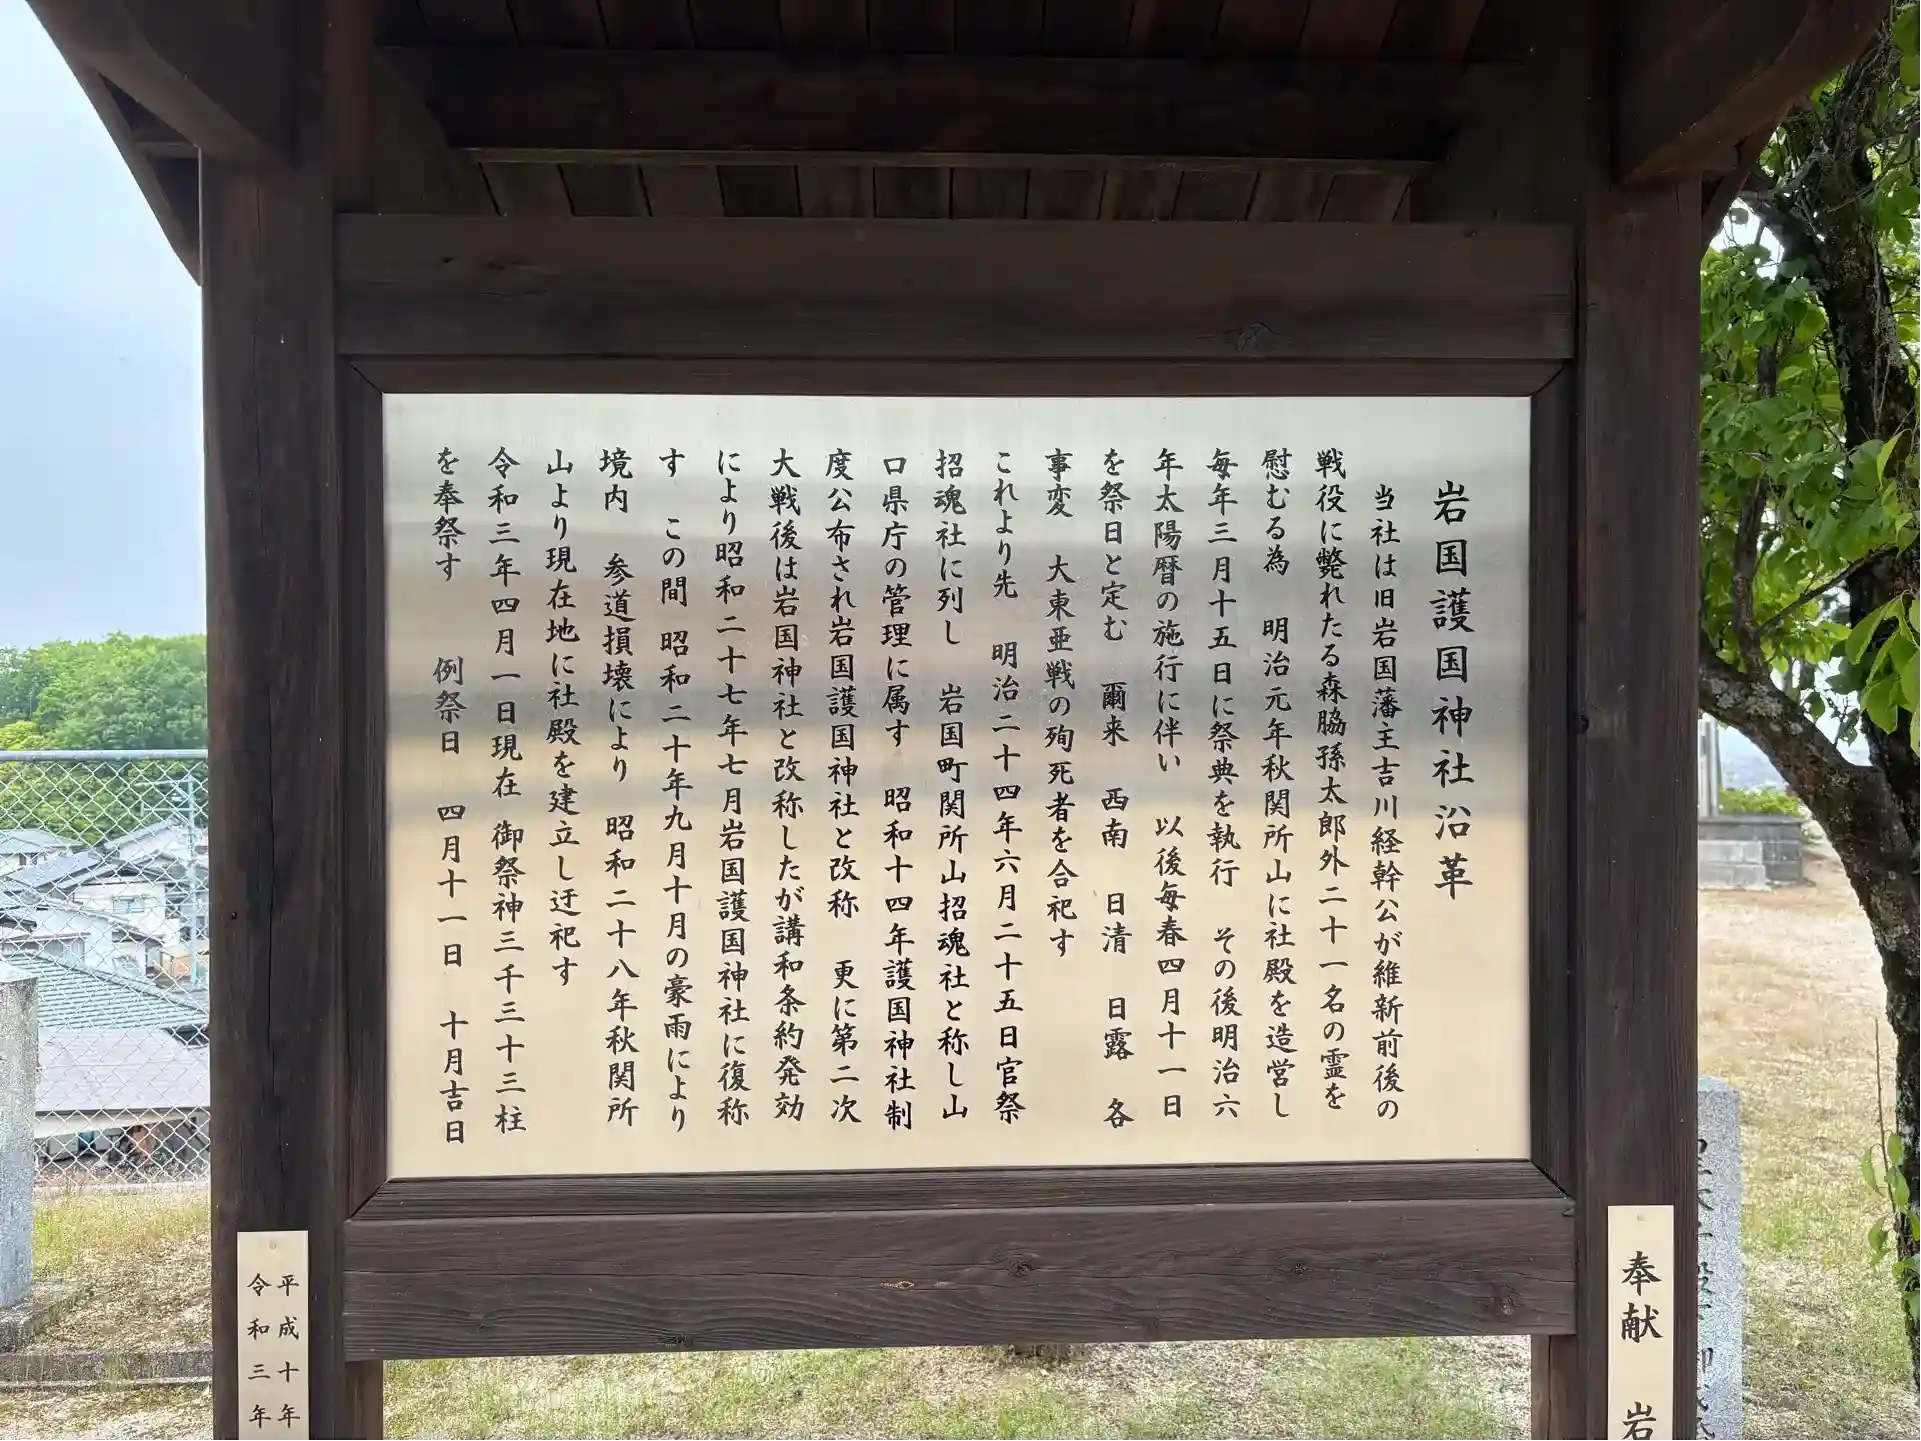 岩国護国神社沿革
当社は旧岩国藩主吉川経幹公が維新前後の
戦役に斃れたる森脇孫太郎外二十一名の霊を
慰むる為　明治元年秋関所山に社殿を造営し
毎年三月十五日に祭典を執行　その後明治六
年太陽暦の施行に伴い　以後毎春四月十一日
を祭日と定む　爾来　西南　日清　日露　各
事変　大東亜戦の殉死者を合祀す
これより先　明治二十四年六月二十五日官祭
招魂社に列し　岩国町関所山招魂社と称し山
口県庁の管理に属す　昭和十四年護国神社制
度公布され岩国護国神社と改称　更に第二次
大戦後は岩国神社と改称したが講和条約発効
により昭和二十七年七月岩国護国神社に復称
す　この間　昭和二十年九月十月の豪雨により
境内　参道損壊により　昭和二十八年秋関所
山より現在地に社殿を建立し迂祀す
令和三年四月一日現在　御祭神三千三十三柱
を奉祭す　　例祭日　四月十一日　十月吉日
奉献　岩
平成十年
令和三年